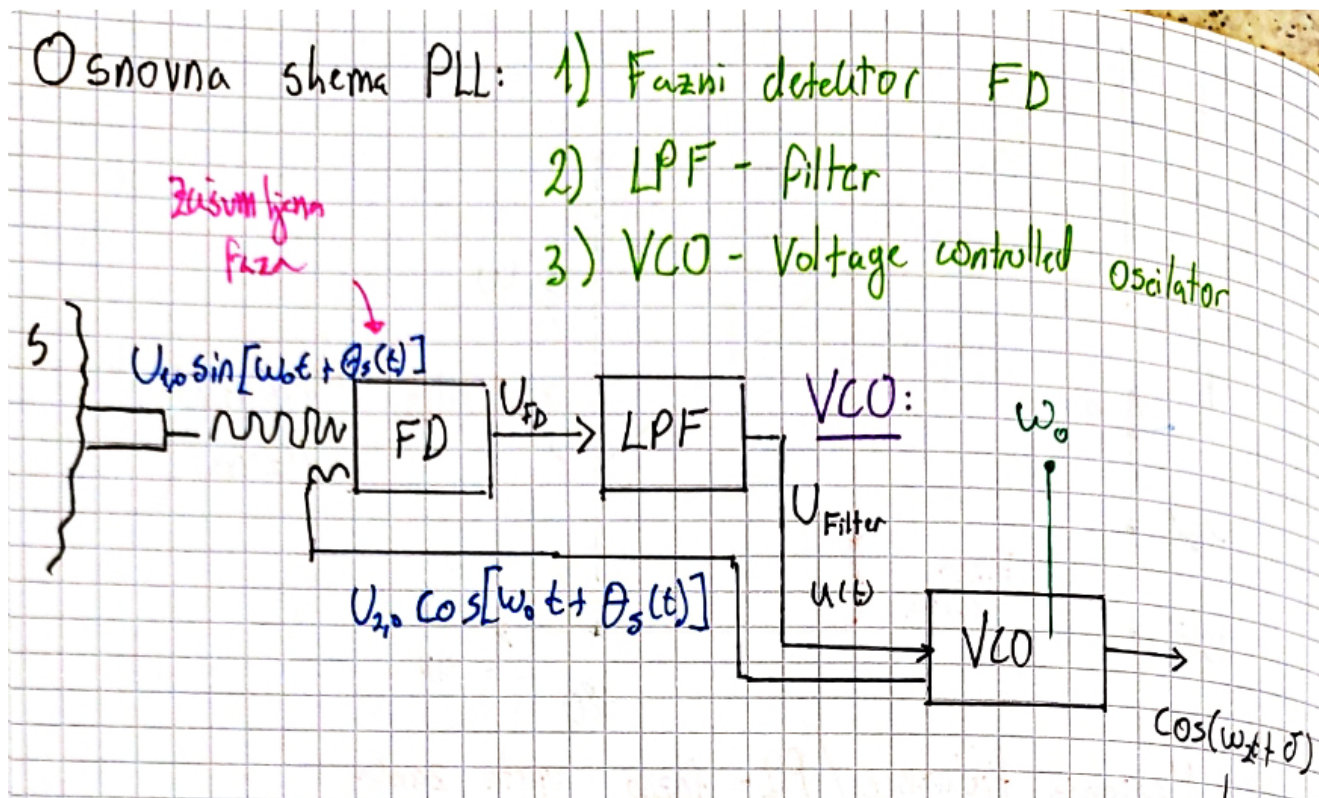 Osnovna shema PLL: 1) Fazni detektor FD
2) LPF - filter
3) VCO - Voltage controlled oscilator
Zašumljena
faza
S
U₁,₀ sin[ω₀t + θₛ(t)]
FD
U_FD
LPF
VCO:
ω₀
U_Filter
u(t)
U₂,₀ cos[ω₀t + θₛ(t)]
VCO
cos(ω₂t + δ)